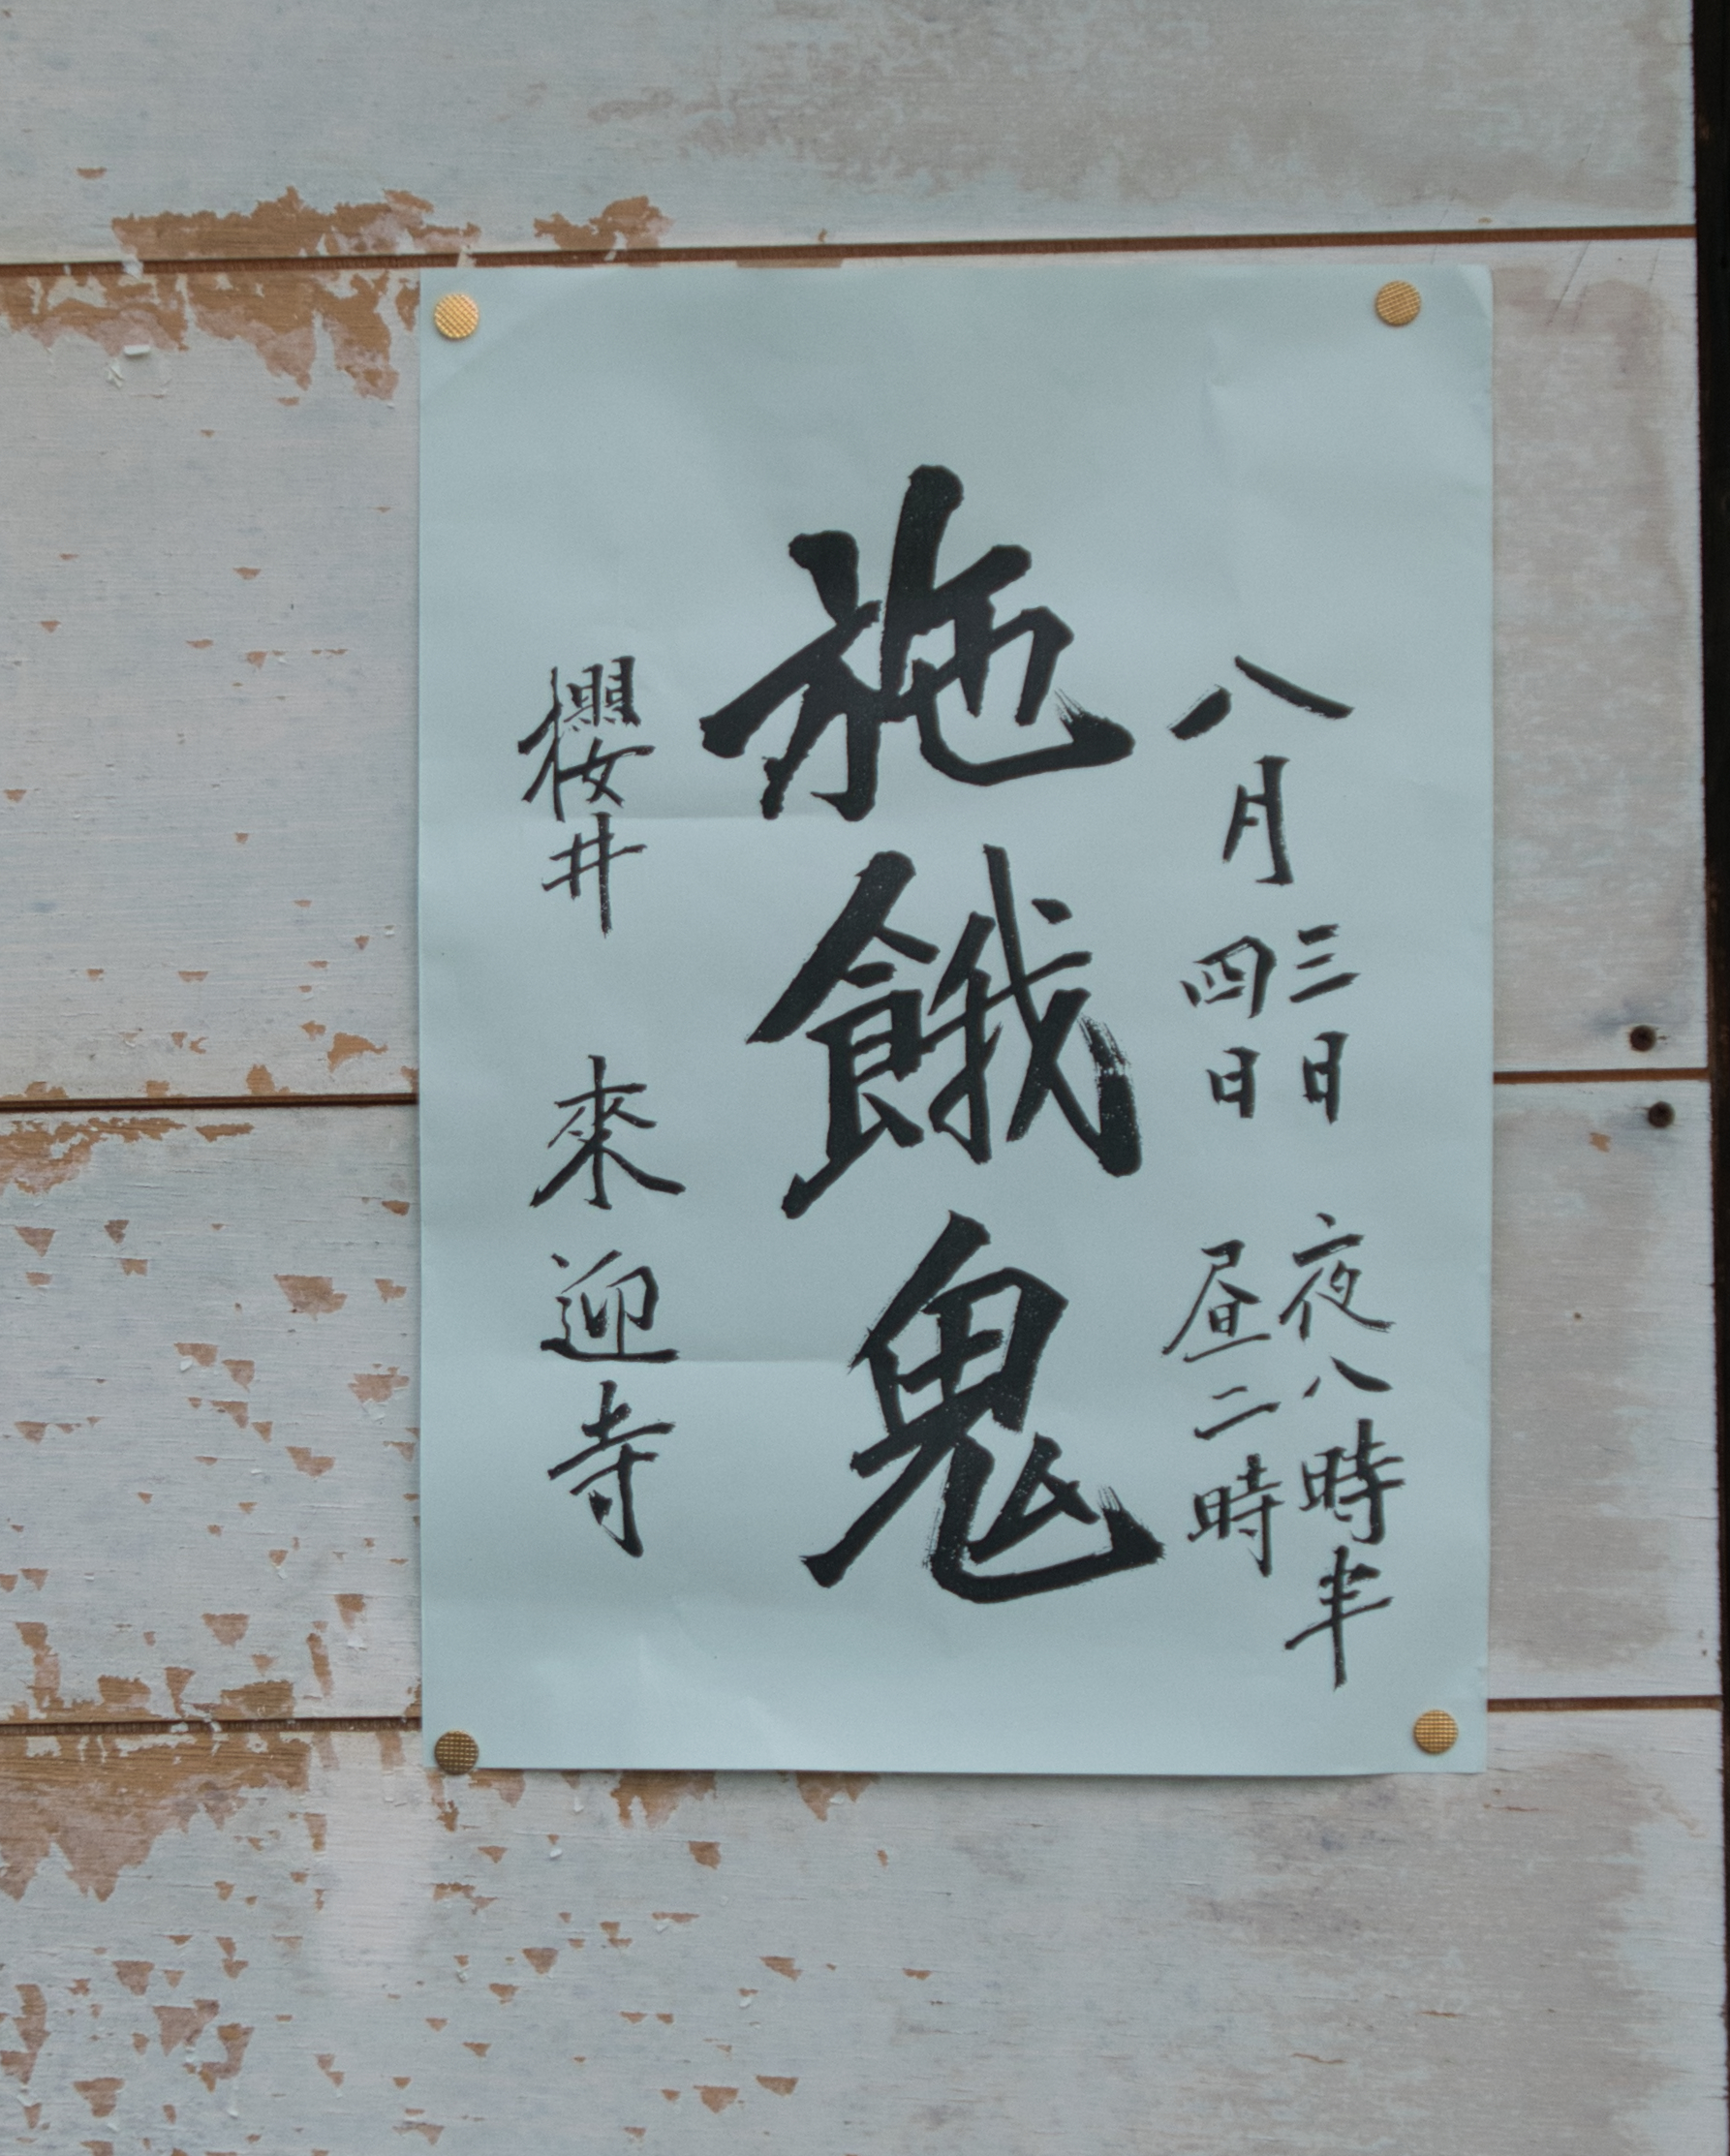 八月 三日 夜八時半
四日 昼二時
施餓鬼
櫻井 來迎寺